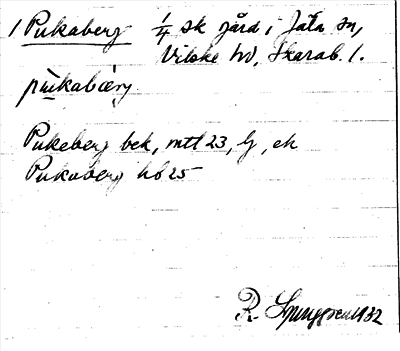 1 Pukaberg 1/4 sk gård i Jäla sn,
Vilske hd, Skarab. l.
pùkabæ̀rj
Pukeberg bek, mtl 23, G, ek
Pukaberg hb 25
R. Ljunggren 1932